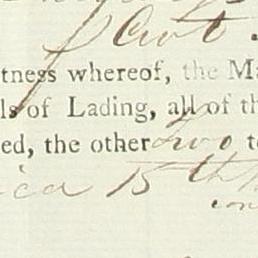 tness whereof, the Ma
ls of Lading, all of th
ed, the other two to
ica 15th
con